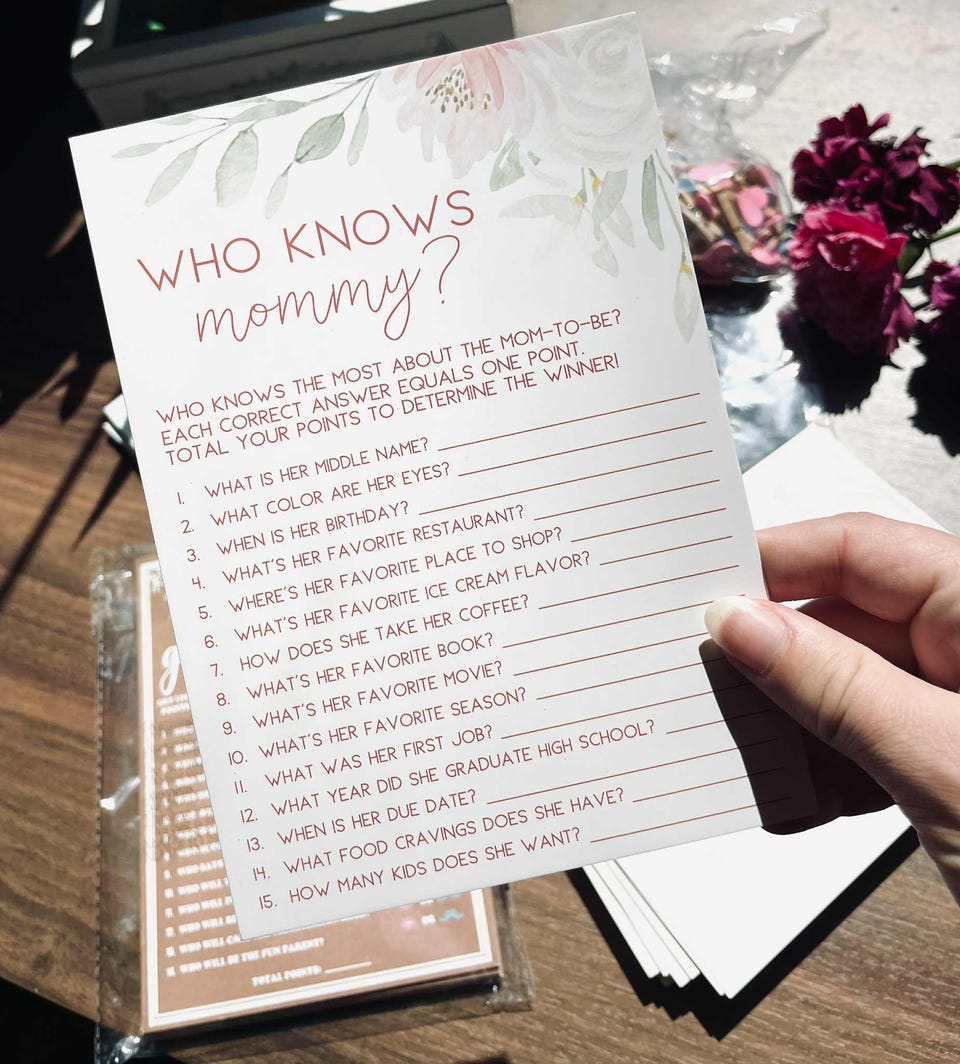 WHO KNOWS
mommy?
WHO KNOWS THE MOST ABOUT THE MOM-TO-BE?
EACH CORRECT ANSWER EQUALS ONE POINT.
TOTAL YOUR POINTS TO DETERMINE THE WINNER!
1. WHAT IS HER MIDDLE NAME?
2. WHAT COLOR ARE HER EYES?
3. WHEN IS HER BIRTHDAY?
4. WHAT'S HER FAVORITE RESTAURANT?
5. WHERE'S HER FAVORITE PLACE TO SHOP?
6. WHAT'S HER FAVORITE ICE CREAM FLAVOR?
7. HOW DOES SHE TAKE HER COFFEE?
8. WHAT'S HER FAVORITE BOOK?
9. WHAT'S HER FAVORITE MOVIE?
10. WHAT'S HER FAVORITE SEASON?
11. WHAT WAS HER FIRST JOB?
12. WHAT YEAR DID SHE GRADUATE HIGH SCHOOL?
13. WHEN IS HER DUE DATE?
14. WHAT FOOD CRAVINGS DOES SHE HAVE?
15. HOW MANY KIDS DOES SHE WANT?
WHO WILL
WHO WILL BE THE FUN PARENT?
TOTAL POINTS: